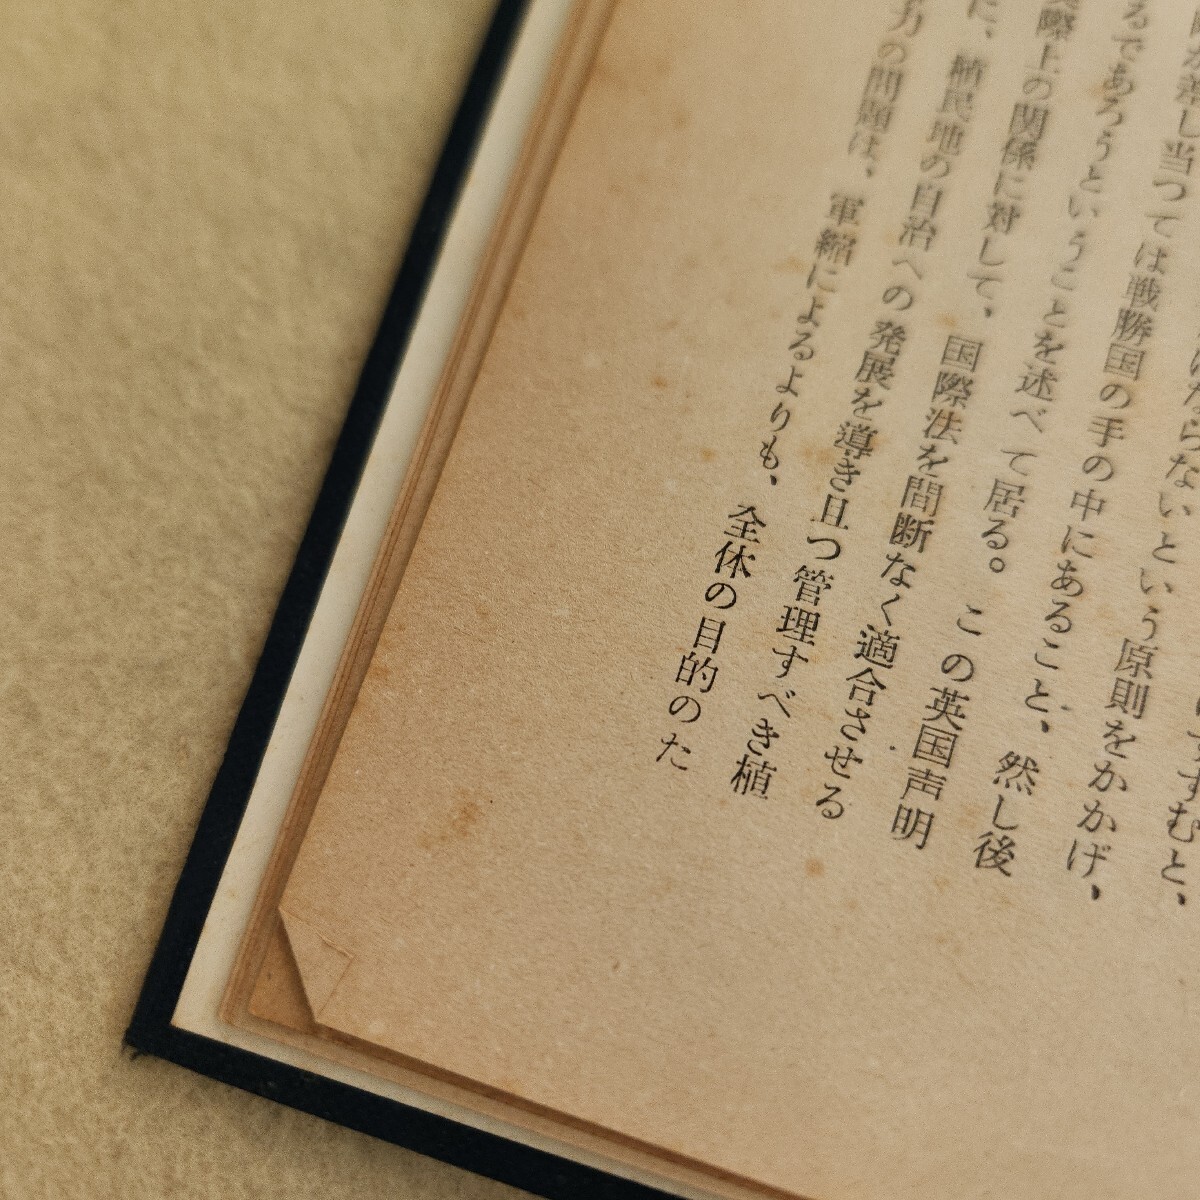 差し当つては戦勝国の手の中にあること、然し後
るであろうということを述べて居る。この英国声明
際上の関係に対して、国際法を間断なく適合させる
に、植民地の自治への発展を導き且つ管理すべき植
力の問題は、軍縮によるよりも、全体の目的のた
ならないという原則をかかげ、
すすむと、